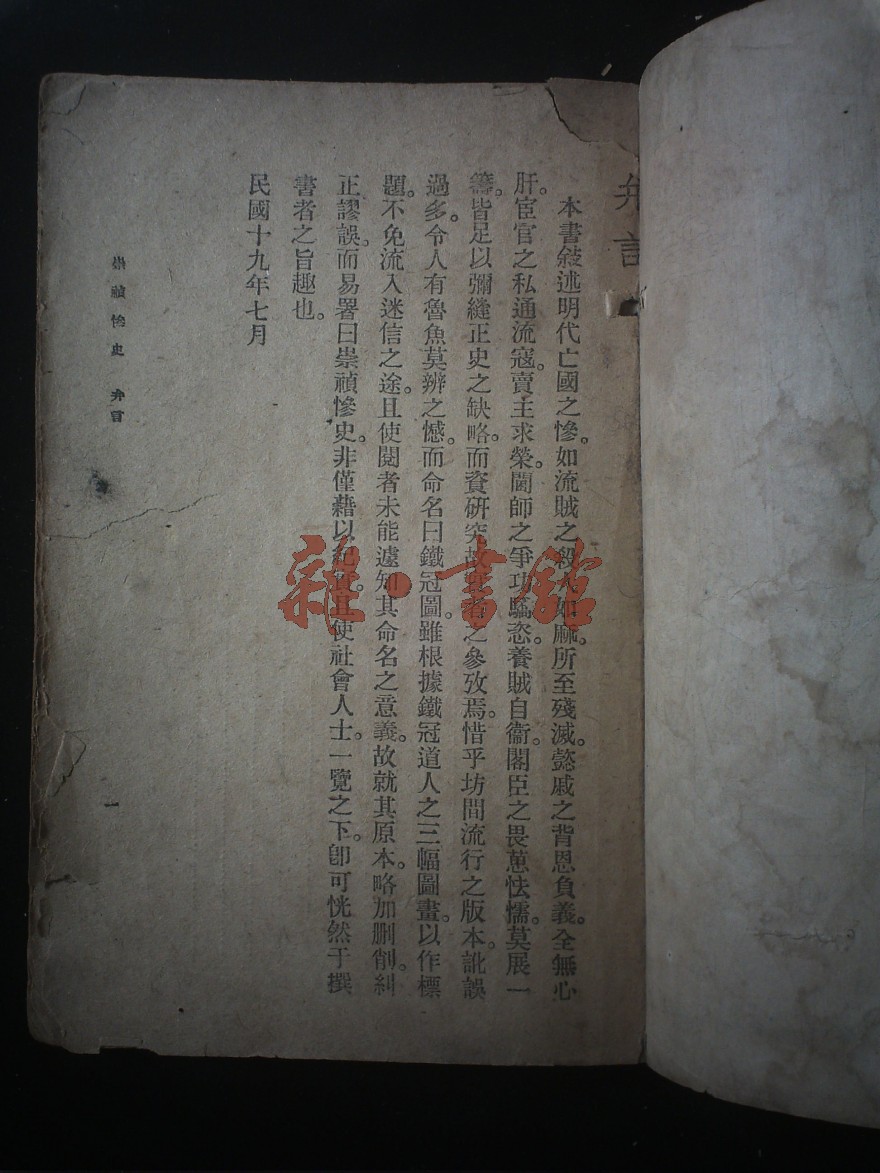 弁言
本書敍述明代亡國之慘。如流賊之殺人如麻。所至殘滅。懿戚之背恩負義。全無心
肝。宦官之私通流寇。賣主求榮。閫師之爭功驕恣。養賊自衞。閣臣之畏葸怯懦。莫展一
籌。皆足以彌縫正史之缺略。而資研究故者之參攷焉。惜乎坊間流行之版本。訛誤
過多。令人有魯魚莫辨之憾。而命名曰鐵冠圖。雖根據鐵冠道人之三幅圖畫。以作標
題。不免流入迷信之途。且使閱者未能遽知其命名之意義。故就其原本。略加删削。糾
正謬誤。而易署曰崇禎慘史。非僅藉以紀。且使社會人士。一覽之下。卽可恍然于撰
書者之旨趣也。
民國十九年七月
崇禎慘史 弁言
一
雜·書館